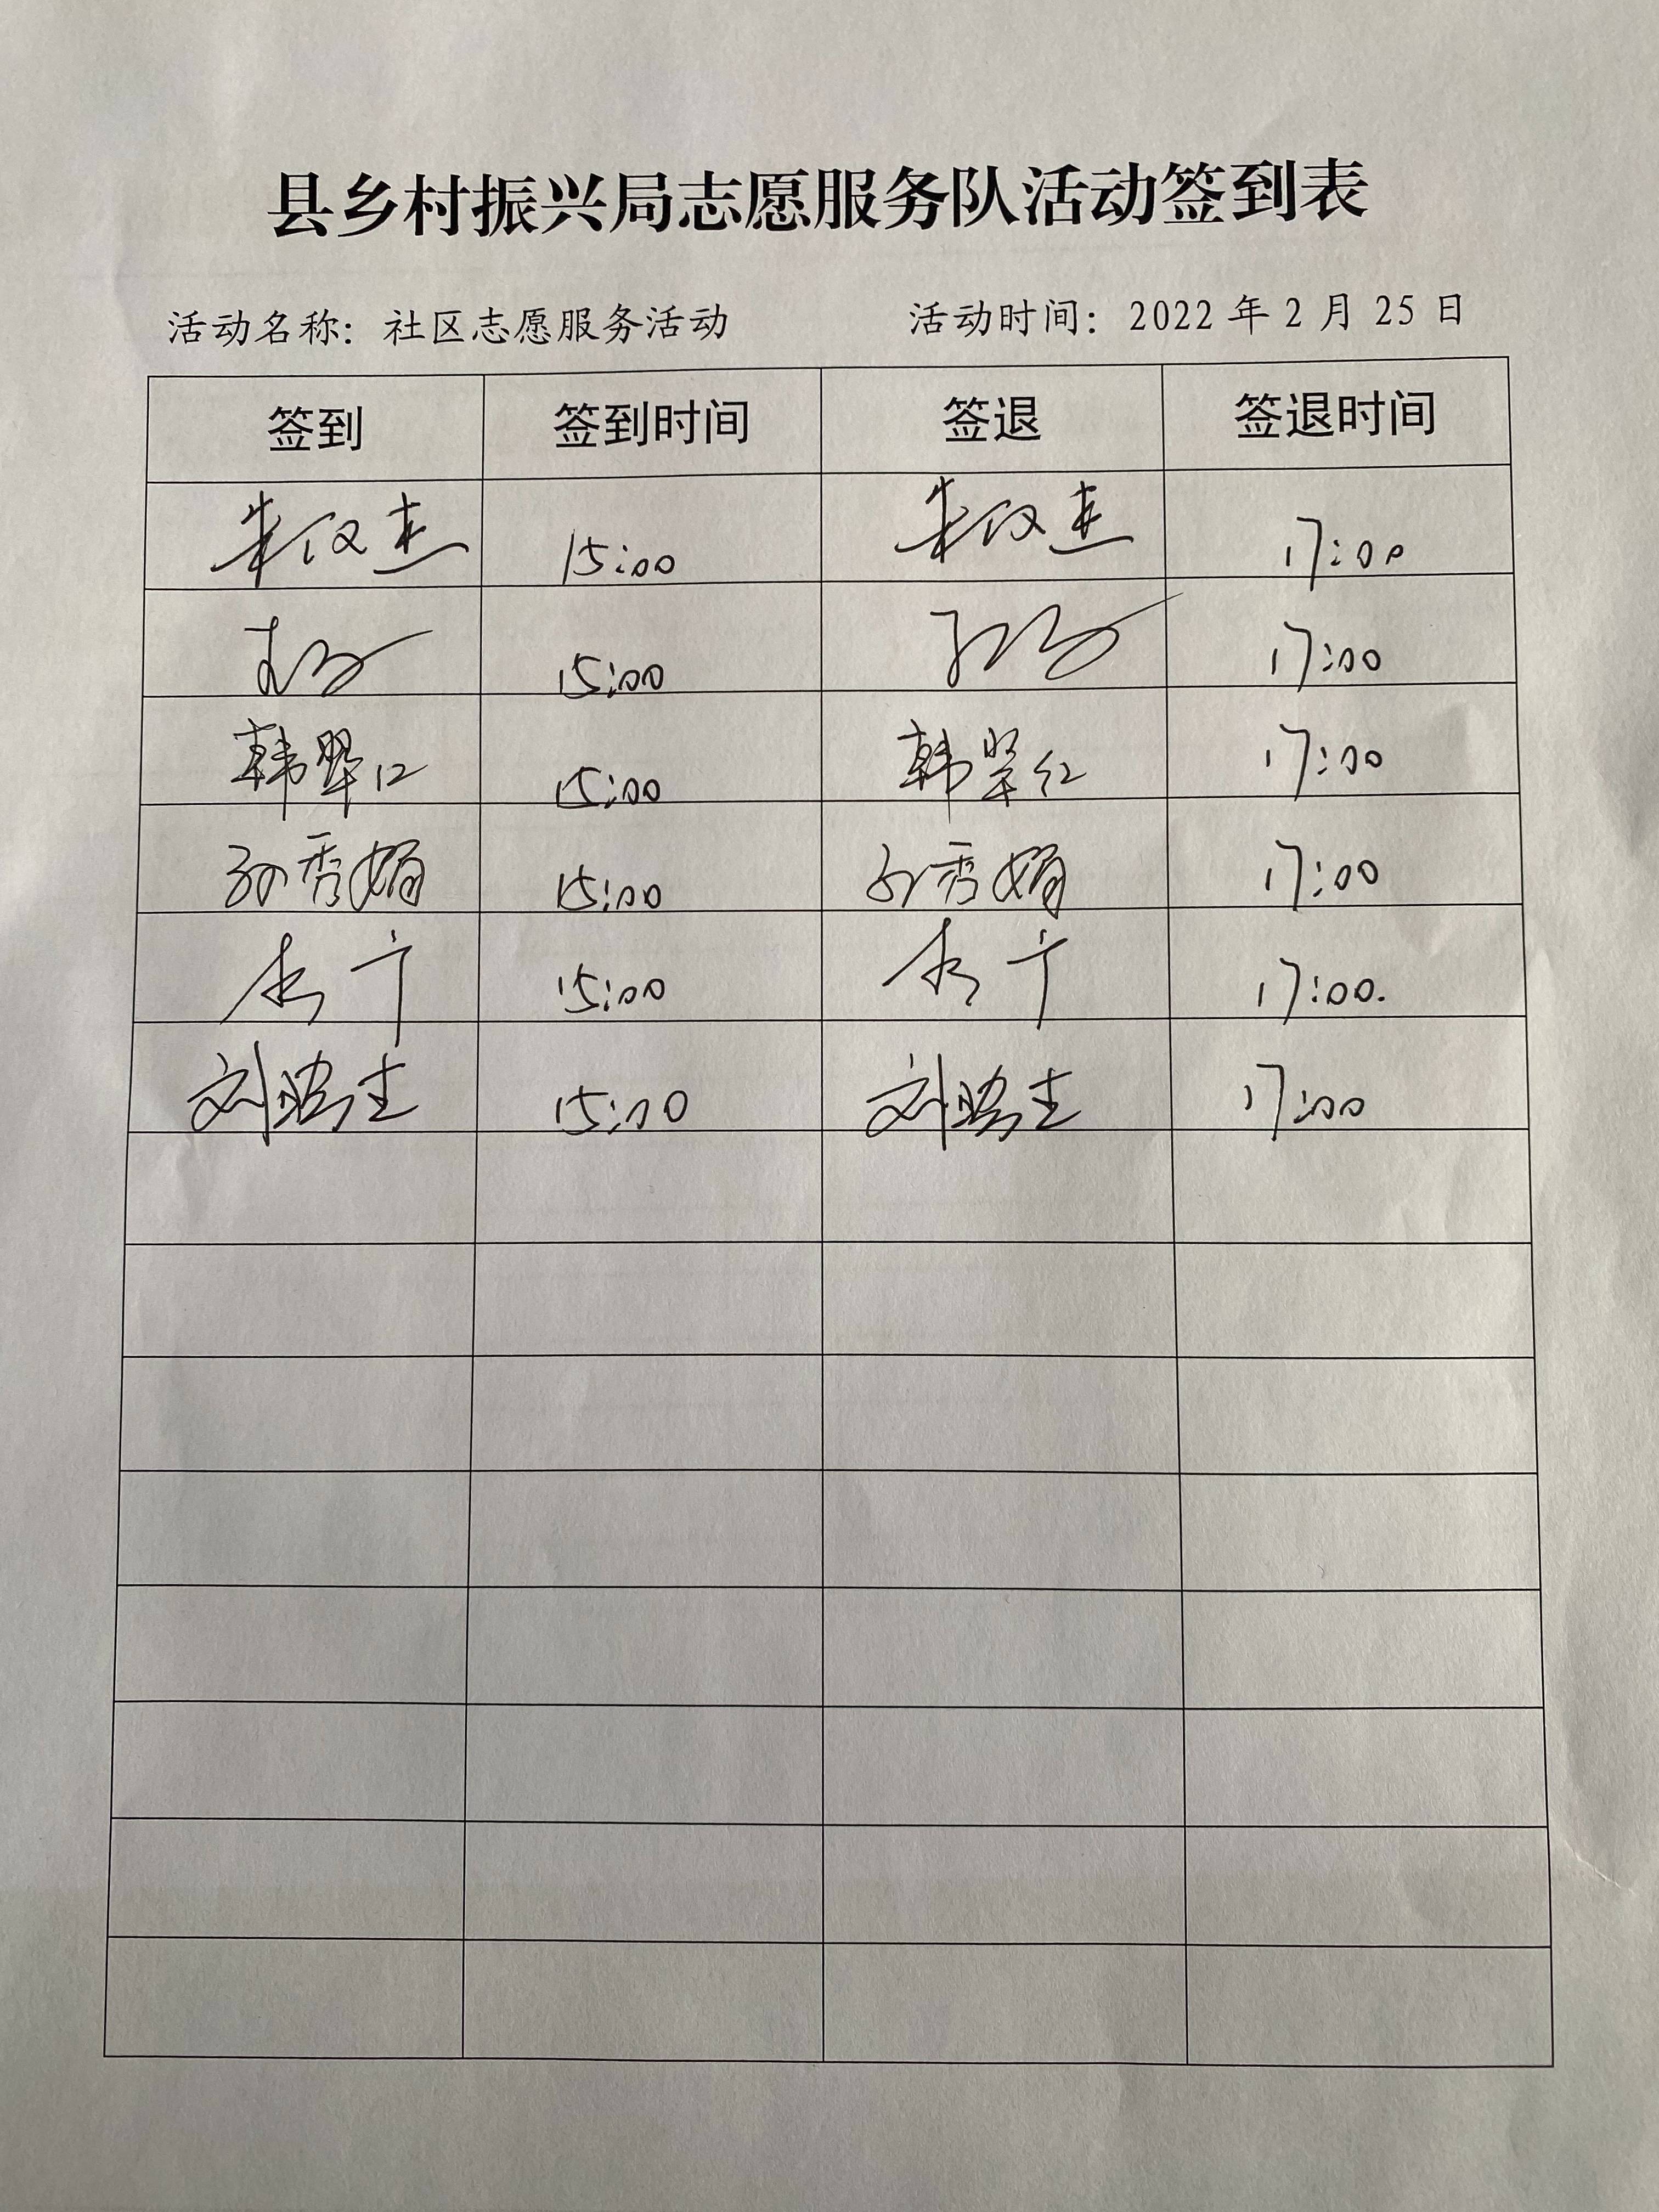 县乡村振兴局志愿服务队活动签到表
活动名称：社区志愿服务活动 活动时间：2022 年 2 月 25 日
签到 签到时间 签退 签退时间
朱仪杰 15:00 朱仪杰 17:00
15:00 17:00
韩翠红 15:00 韩翠红 17:00
孙秀娟 15:00 孙秀娟 17:00
15:00 17:00.
刘 15:00 刘 17:00